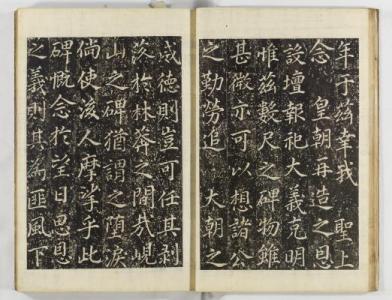 年于茲幸我　聖上
念　皇朝再造之恩
設壇報祀大義克明
惟茲數尺之碑物雖
甚微亦可以想諸公
之勤勞追　大朝之
成德則豈可任其剥
落於林莽之間哉峴
山之碑猶謂之墮淚
倘使後人摩挲乎此
碑慨念於望日思恩
之義則其為匪風下